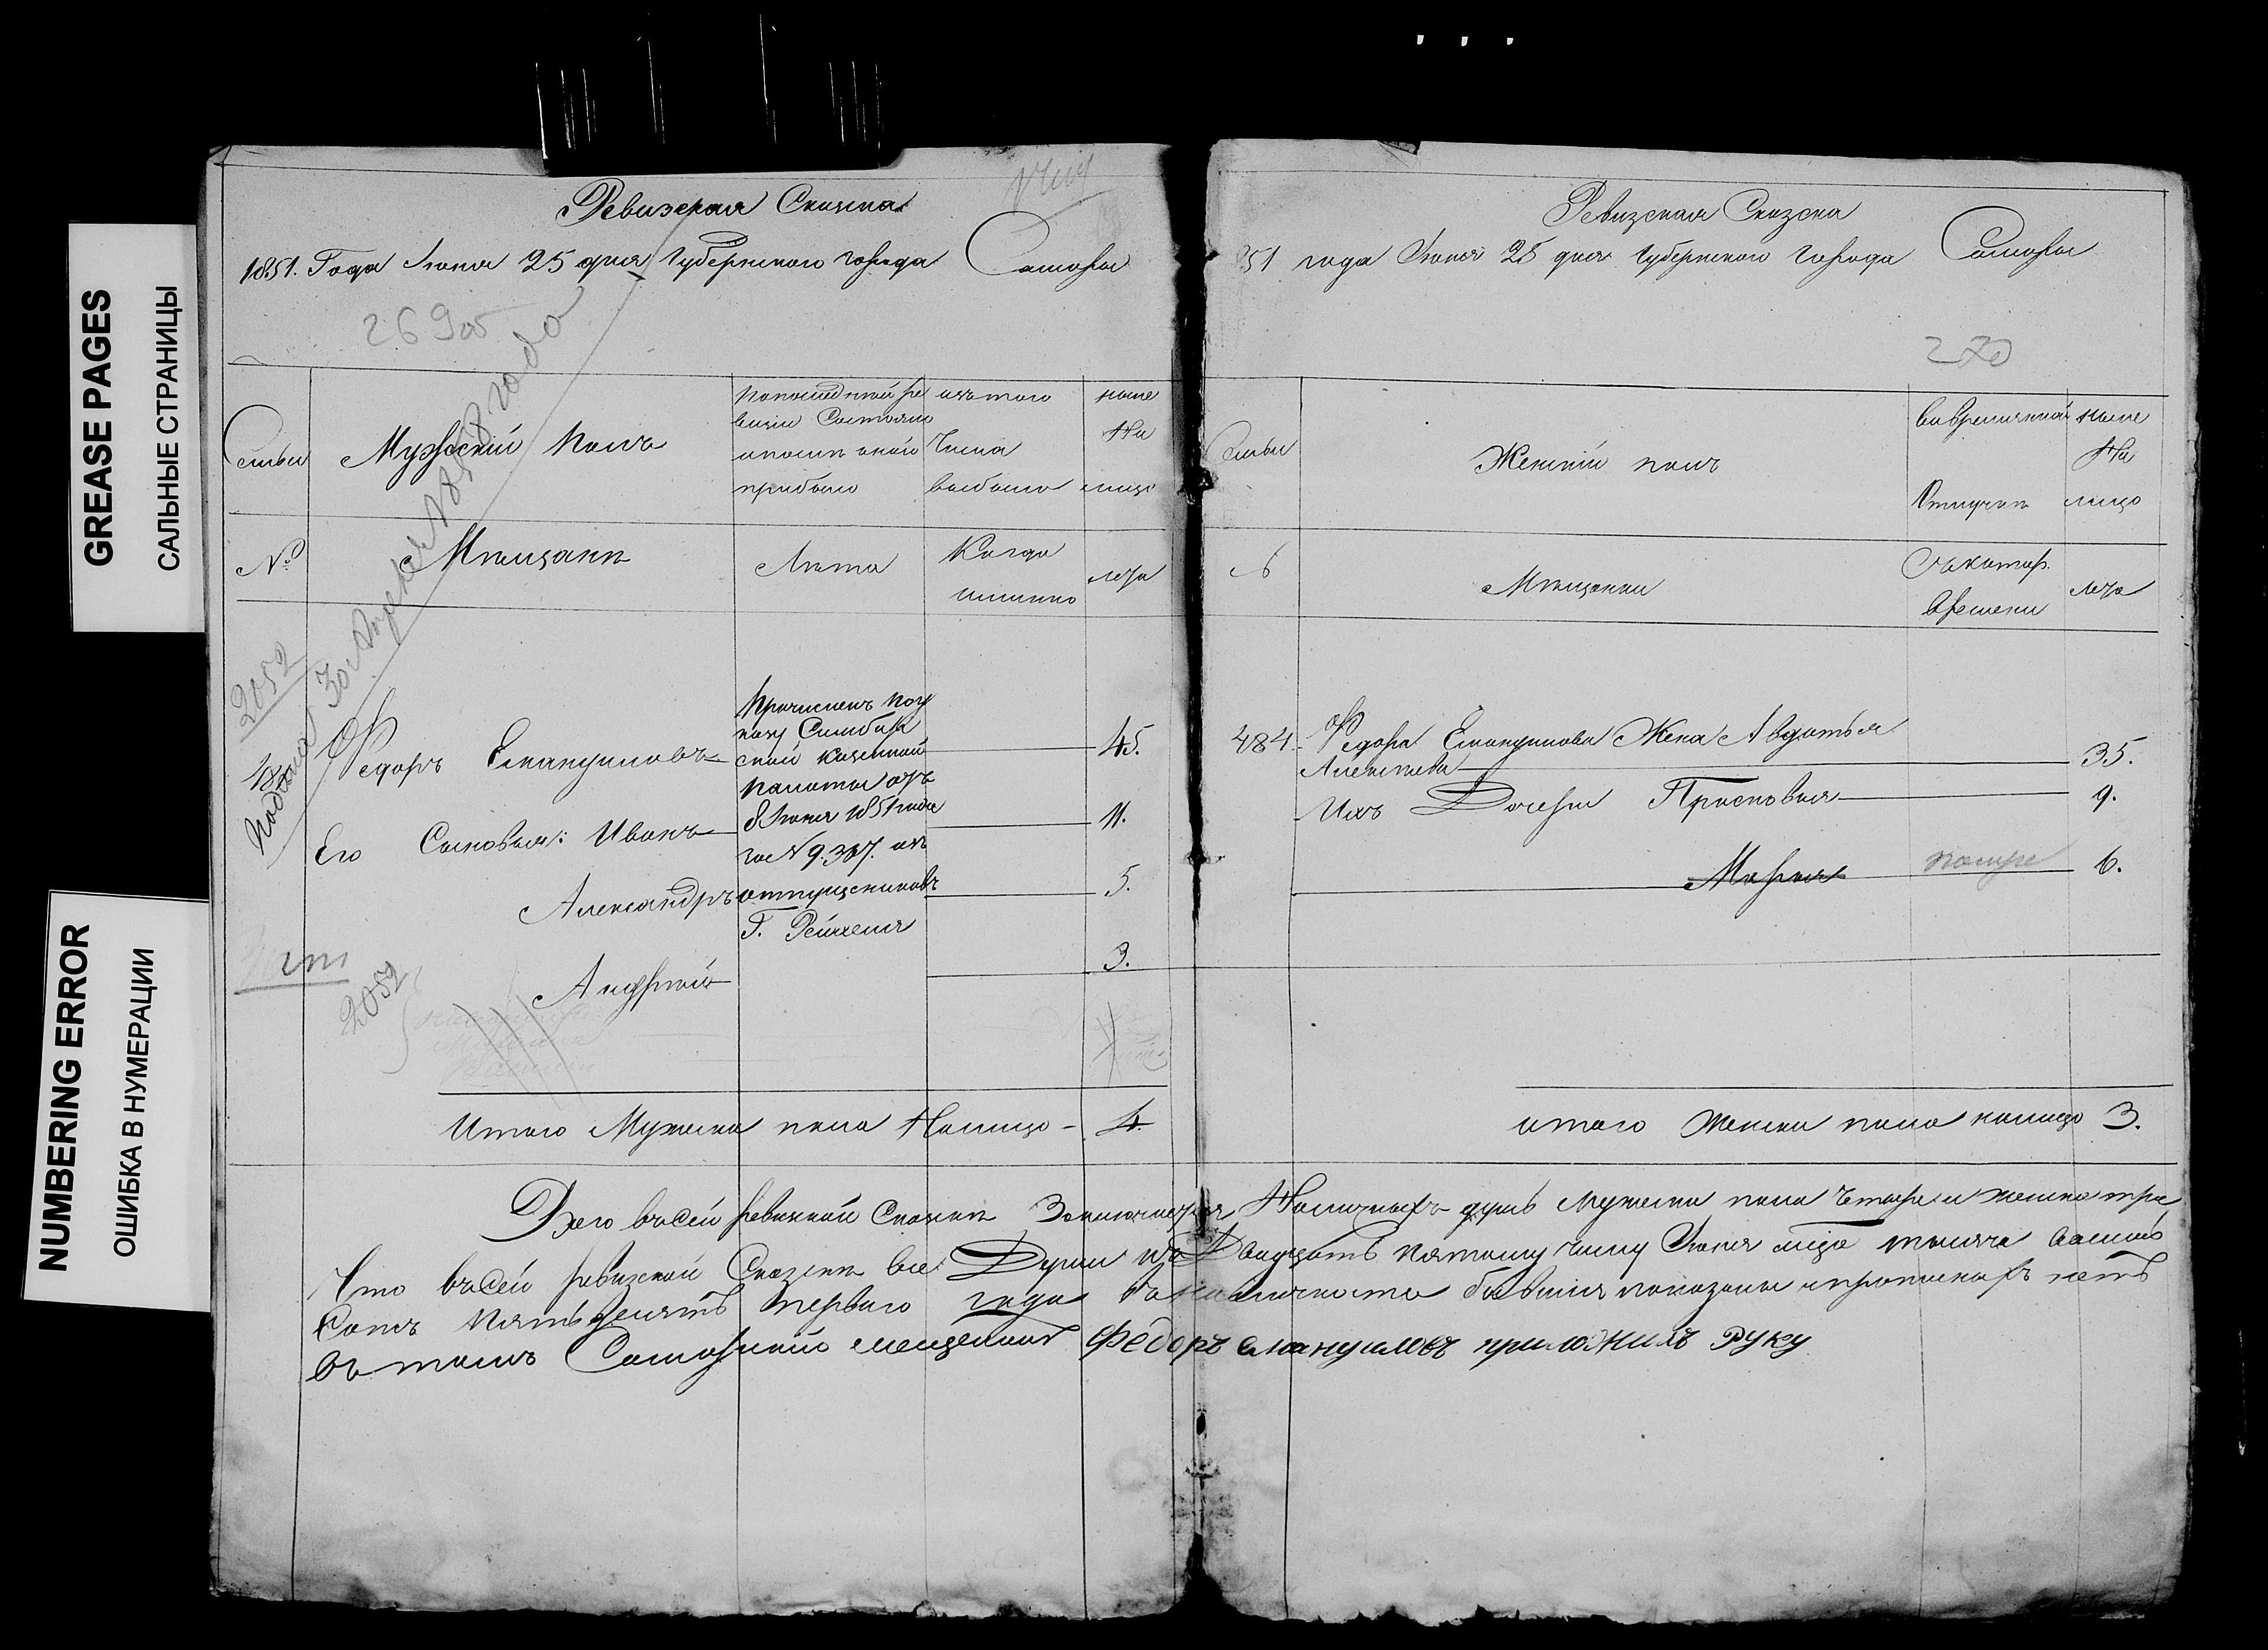 GREASE PAGES
САЛЬНЫЕ СТРАНИЦЫ
NUMBERING ERROR
ОШИБКА В НУМЕРАЦИИ
Ревизская Сказка
1851. Года Июня 25 дня Губернского города Самары
269об
Семьи
Мужеский полъ
По последней ре
визіи Состояло
и после оной
прибыло
изъ того
Числа
выбыло
ныне
На
лицо
№
Мѣщане
Лѣта
Когда
имянно
лѣта
2052
Подана 30 Апреля 1858 года
Федоръ Емануиловъ
45.
Причисленъ по у
казу Симбир
ской казенной
палаты отъ
8 Июня 1851 года
за № 9.367. изъ
отпущениковъ
Г. Рейхеля
Его Сыновья: Иванъ
11.
Александръ
5.
Андрей
3.
2052
Итого Мужеска пола Налицо - 4
Ревизская Сказка
851 года Июня 25 дня Губернского Города Самары
270
Семьи
Женскій полъ
Во временной
Отлучке
ныне
На
лицо
№
Мѣщанки
Съ котор.
Времени
лѣта
484.
Федора Емануилова Жена Авдотья
Алексѣева
35.
Ихъ Дочери Прасковья
9.
Марья
6.
итого Женска пола налицо 3.
Всего въ сей ревизкой Сказке Заключается Наличныхъ душъ Мужеска пола Четыре и женска три
Что въ сей ревизской Сказке все Души къ Двадцать пятому числу Июня месяца тысяча восемь
Сотъ пятьдесятъ перваго года на наличности бывшия показаны и прописныхъ нетъ
въ томъ Самарский мещанинъ Федоръ емануиловъ приложилъ Руку